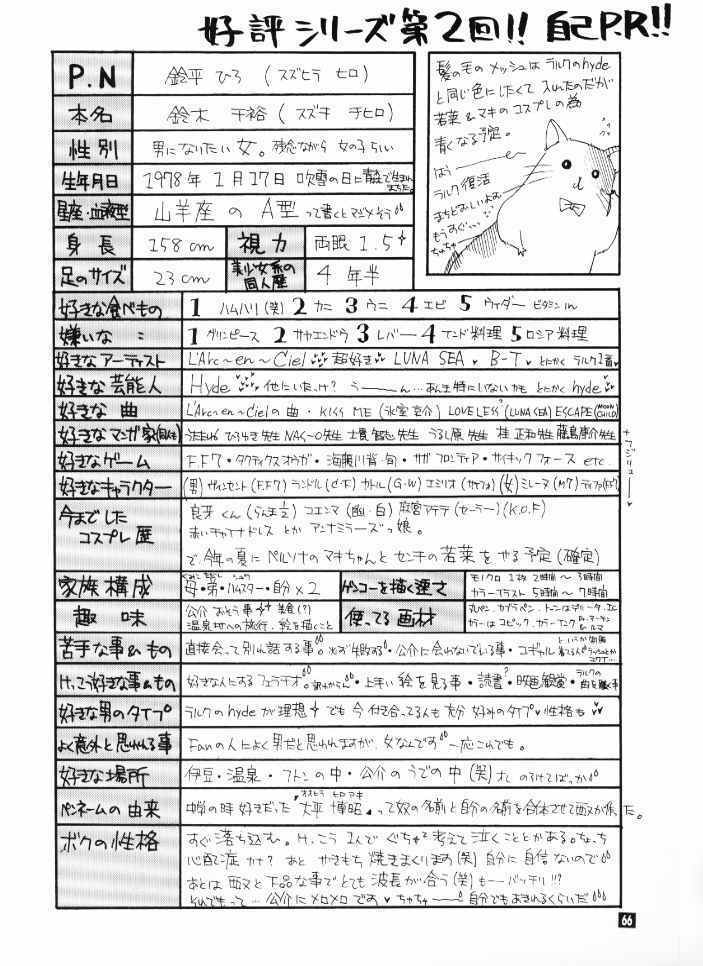 好評シリーズ第2回!! 自己P.R!!
P.N 鈴平 ひろ (スズヒラ ヒロ)
本名 鈴木 千裕 (スズキ チヒロ)
性別 男になりたい 女。残念ながら 女の子らしい
生年月日 1978年 1月17日 吹雪の日に青森で生まれました。
星座・血液型 山羊座 の A型 って書くとマジメそう
身長 158cm 視力 両眼 1.5
足のサイズ 23cm 美少女系の同人歴 4年半
髪の毛の メッシュは ラルクのhyde
と同じ色にしたくて 入れたのだが
若菜&マキのコスプレの為
青くなる予定。
ラルク復活
まちどおしいよぉ
もうすぐ…
好きな食べもの 1 ハムハリ(笑) 2 カニ 3 ウニ 4 エビ 5 ウィダー ビタミン in
嫌いな 〃 1 グリンピース 2 サヤエンドウ 3 レバー 4 インド料理 5 ロシア料理
好きな アーティスト L'Arc~en~Ciel 超好き LUNA SEA B-T とにかく ラルク1番
好きな 芸能人 Hyde 他にいたっけ? うーーん…あんま特にいないかも とにかく hyde
好きな 曲 L'Arc~en~Cielの曲・KISS ME (氷室京介) LOVELESS (LUNA SEA) ESCAPE (MOON CHILD)
好きな マンガ家 NAC~O先生 士貴智志先生 うるし原先生 桂 正和先生 藤島康介先生
好きな ゲーム F.F7・タクティクスオウガ・海腹川背・旬・サガ フロンティア・サイキックフォース etc…
好きな キャラクター (男) ヴィンセント(F.F7) カトル(G・W) エミリオ (女) ミレーヌ(M7) ティファ(F.F7)
今までした コスプレ歴 良牙くん(らんま1/2) コエンマ(幽・白) (セーラー) (K.O.F)
赤いチャイナドレス とか アンナミラーズっ娘。
で 今年の夏に ペルソナの マキちゃんと センチの若菜をやる予定(確定)
家族構成 母・弟・ハムスター・自分×2 ゲンコーを描く速さ モノクロ 1枚 2時間~3時間
カラーイラスト 5時間~7時間
趣味 公介 おそう事 温泉地への旅行、絵を描くこと 使ってる画材 丸ペン、カブラペン、トーンはデリータ、I.C
カラーはコピック、カラーインク Dr.マーチン & ルマ
苦手な事&もの 直接会って別れ話する事。・公介に会えないでいる事・コギャル
けっこう好きな事&もの 上手い絵を見る事・読書?・映画観賞・ラルクの曲を聴く事
好きな男のタイプ ラルクの hyde が理想 でも 今 付き合ってる人も 充分 好みのタイプ 性格も
よく意外と思われる事 Fanの人によく男だと思われますが、女なんです 一応これでも。
好きな場所 伊豆・温泉・フトンの中・公介のうでの中(笑) のろけてばっか
ペンネームの由来 中学の時 好きだった 大平 博昭 オオヒラ ヒロアキ って奴の名前と自分の名前を合体させて西又が作った。
ボクの性格 すぐ落ち込む。けっこう 1人で ぐちゃぐちゃ考えて 泣くこととかある。
心配症 かな? あと やきもち 焼きまくります(笑) 自分に 自信 ないので
あとは 西又と 下品な事で とても 波長が合う(笑) もーーバッチリ!!?
それでもって… 公介にメロメロです 自分でもあきれるくらいだ
66